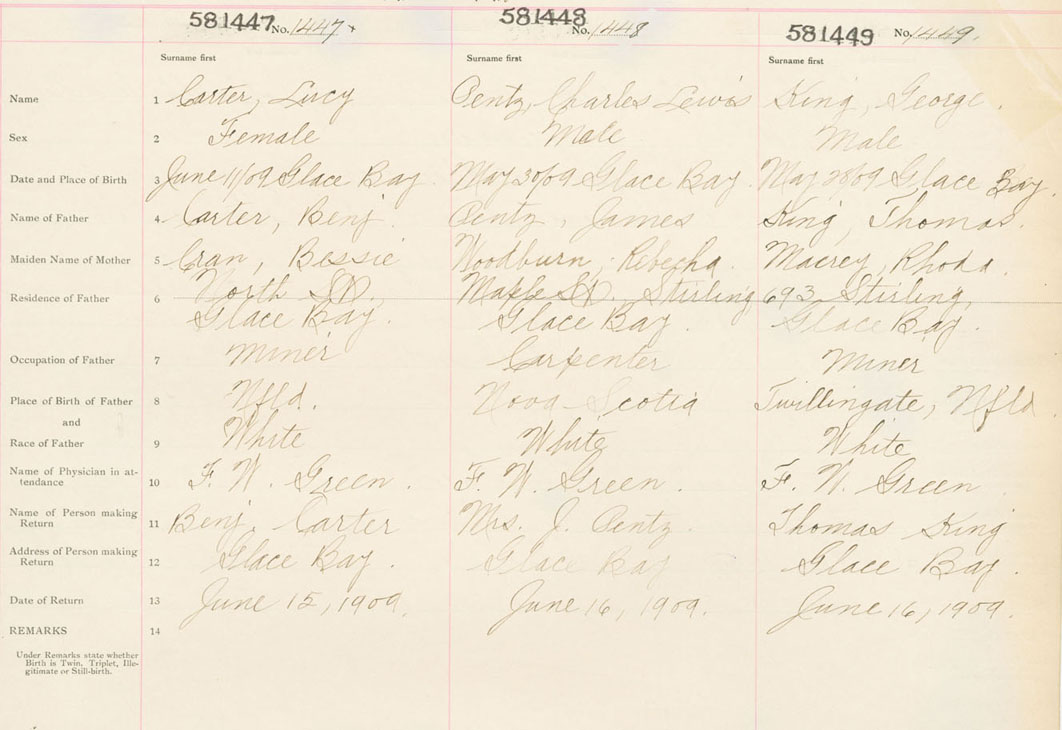 581447 No. 1447
581448 No. 1448
581449 No. 1449
Surname first Surname first Surname first
Name 1 Carter, Lucy Pentz, Charles Lewis King, George.
Sex 2 Female Male Male
Date and Place of Birth 3 June 11/09 Glace Bay. May 30/09 Glace Bay. May 28/09 Glace Bay.
Name of Father 4 Carter, Benj Pentz, James King, Thomas.
Maiden Name of Mother 5 Cran, Bessie Woodburn, Rebecha. Macrey, Rhoda.
Residence of Father 6 North St., Maple St. Stirling 693 Stirling,
Glace Bay. Glace Bay. Glace Bay.
Occupation of Father 7 Miner Carpenter Miner
Place of Birth of Father 8 Nfld. Nova Scotia Twillingate, Nfld.
and
Race of Father 9 White White White
Name of Physician in at-
tendance 10 F. W. Green. F. W. Green. F. W. Green
Name of Person making
Return 11 Benj. Carter Mrs. J. Pentz Thomas King
Address of Person making
Return 12 Glace Bay. Glace Bay Glace Bay.
Date of Return 13 June 15, 1909. June 16, 1909. June 16, 1909.
REMARKS 14
Under Remarks state whether
Birth is Twin, Triplet, Ille-
gitimate or Still-birth.